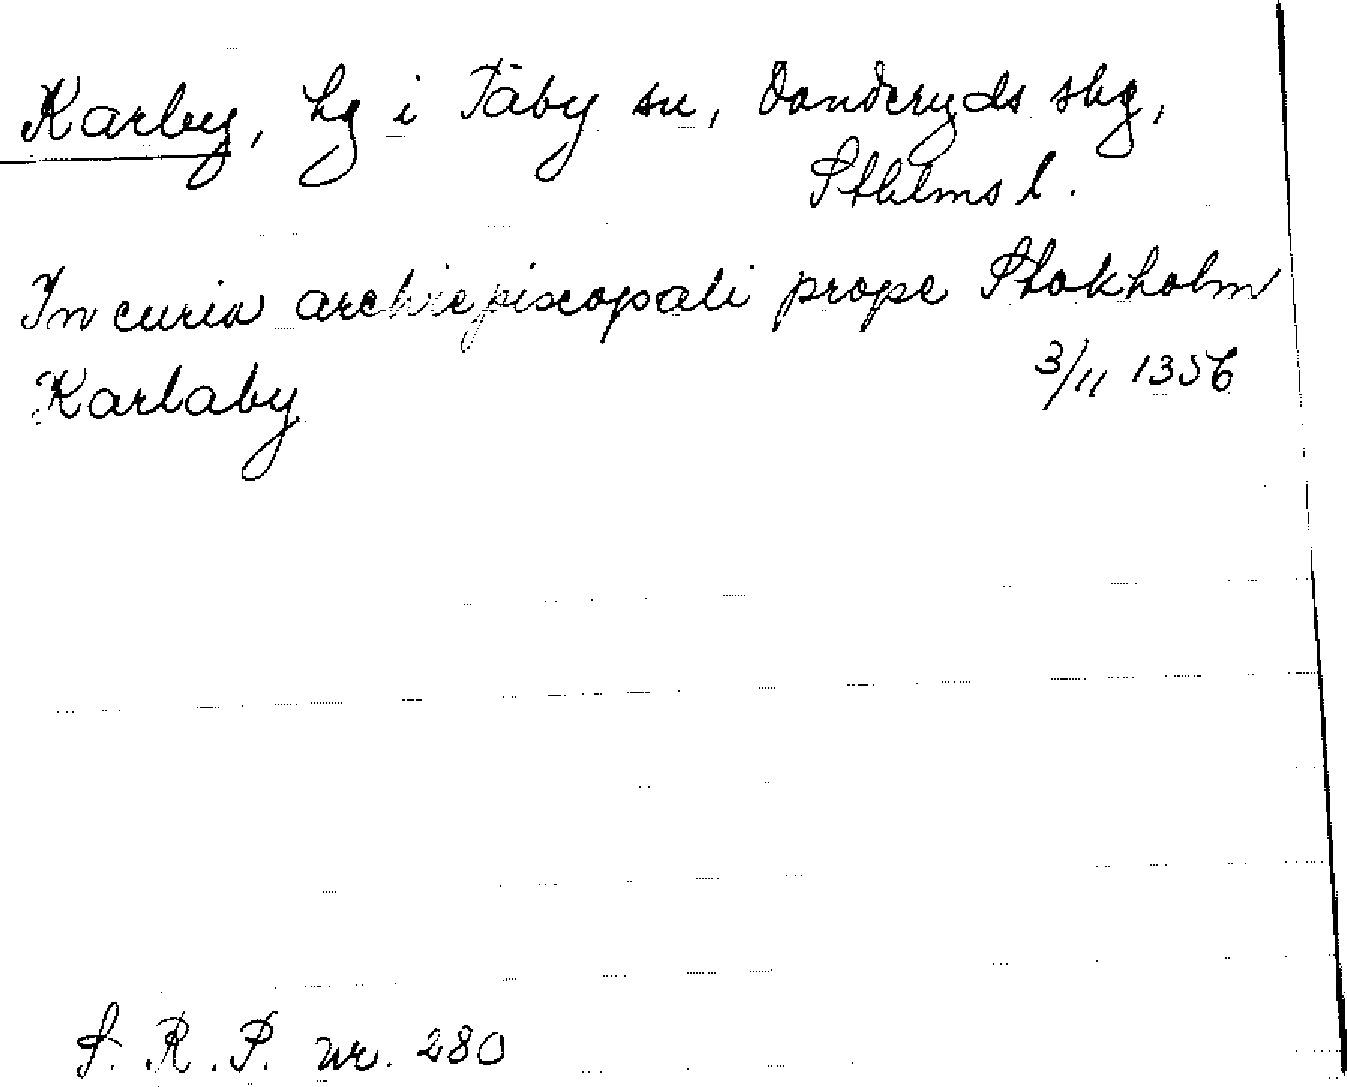 Karby, hg i Täby sn, Danderyds skg,
Sthlms l.
In curia archiepiscopali prope Stokholm
Karlaby 3/11 1356
S. R. P. nr. 280